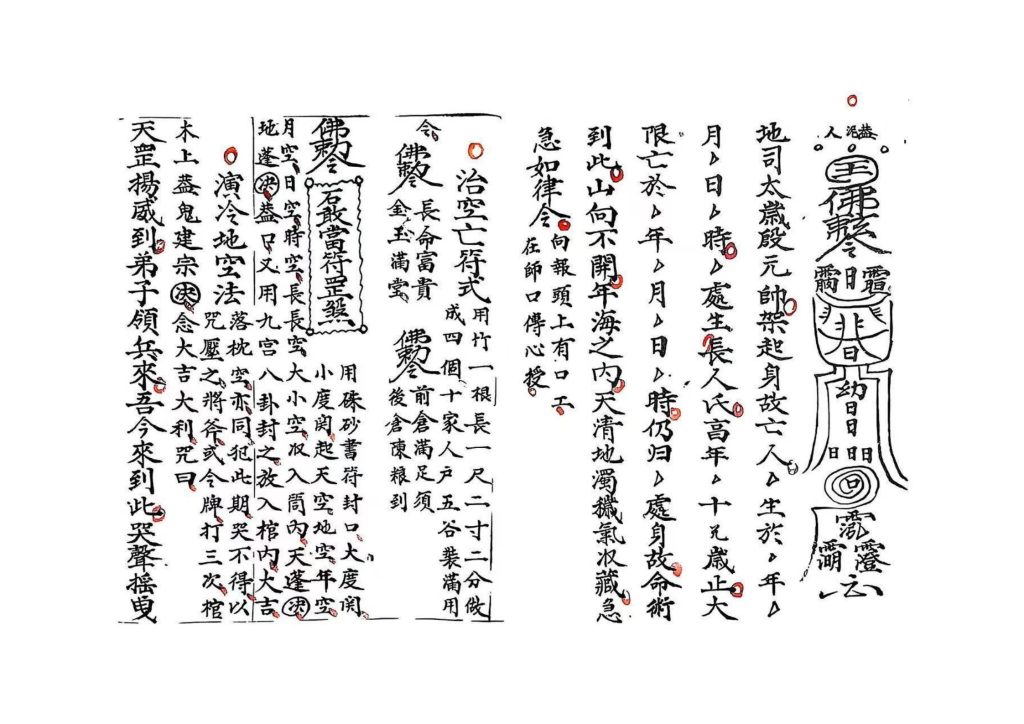 地司太歲殷元帥架起身故亡人、生於、年、
月、日、時、處生長人氏高年、十元歲止大
限亡於、年、月、日、時仍归、處身故命術
到此山向不開年海之內天清地濁穢氣収藏急
急如律令
向報頭上有口工
在師口傳心授
治空亡符式
用竹一根長一尺二寸二分做
成四個十家人戶五谷裝滿用
令
佛敕令
長命富貴
金玉滿堂
佛敕令
前倉滿足須
後倉陳粮到
佛敕令
石敢當符罡煞
用硃砂書符封口大度関
小度関起天空地空年空
月空日空時空長長空大小空収入筒內天蓬決
地蓬決葢口又用九宮八卦封之放入棺內大吉
演冷地空法
落枕空亦同犯此期哭不得以
咒壓之將斧或令牌打三次棺
木上葢鬼建宗決念大吉大利咒曰
天罡揚威到弟子領兵來吾今來到此哭聲搖曳